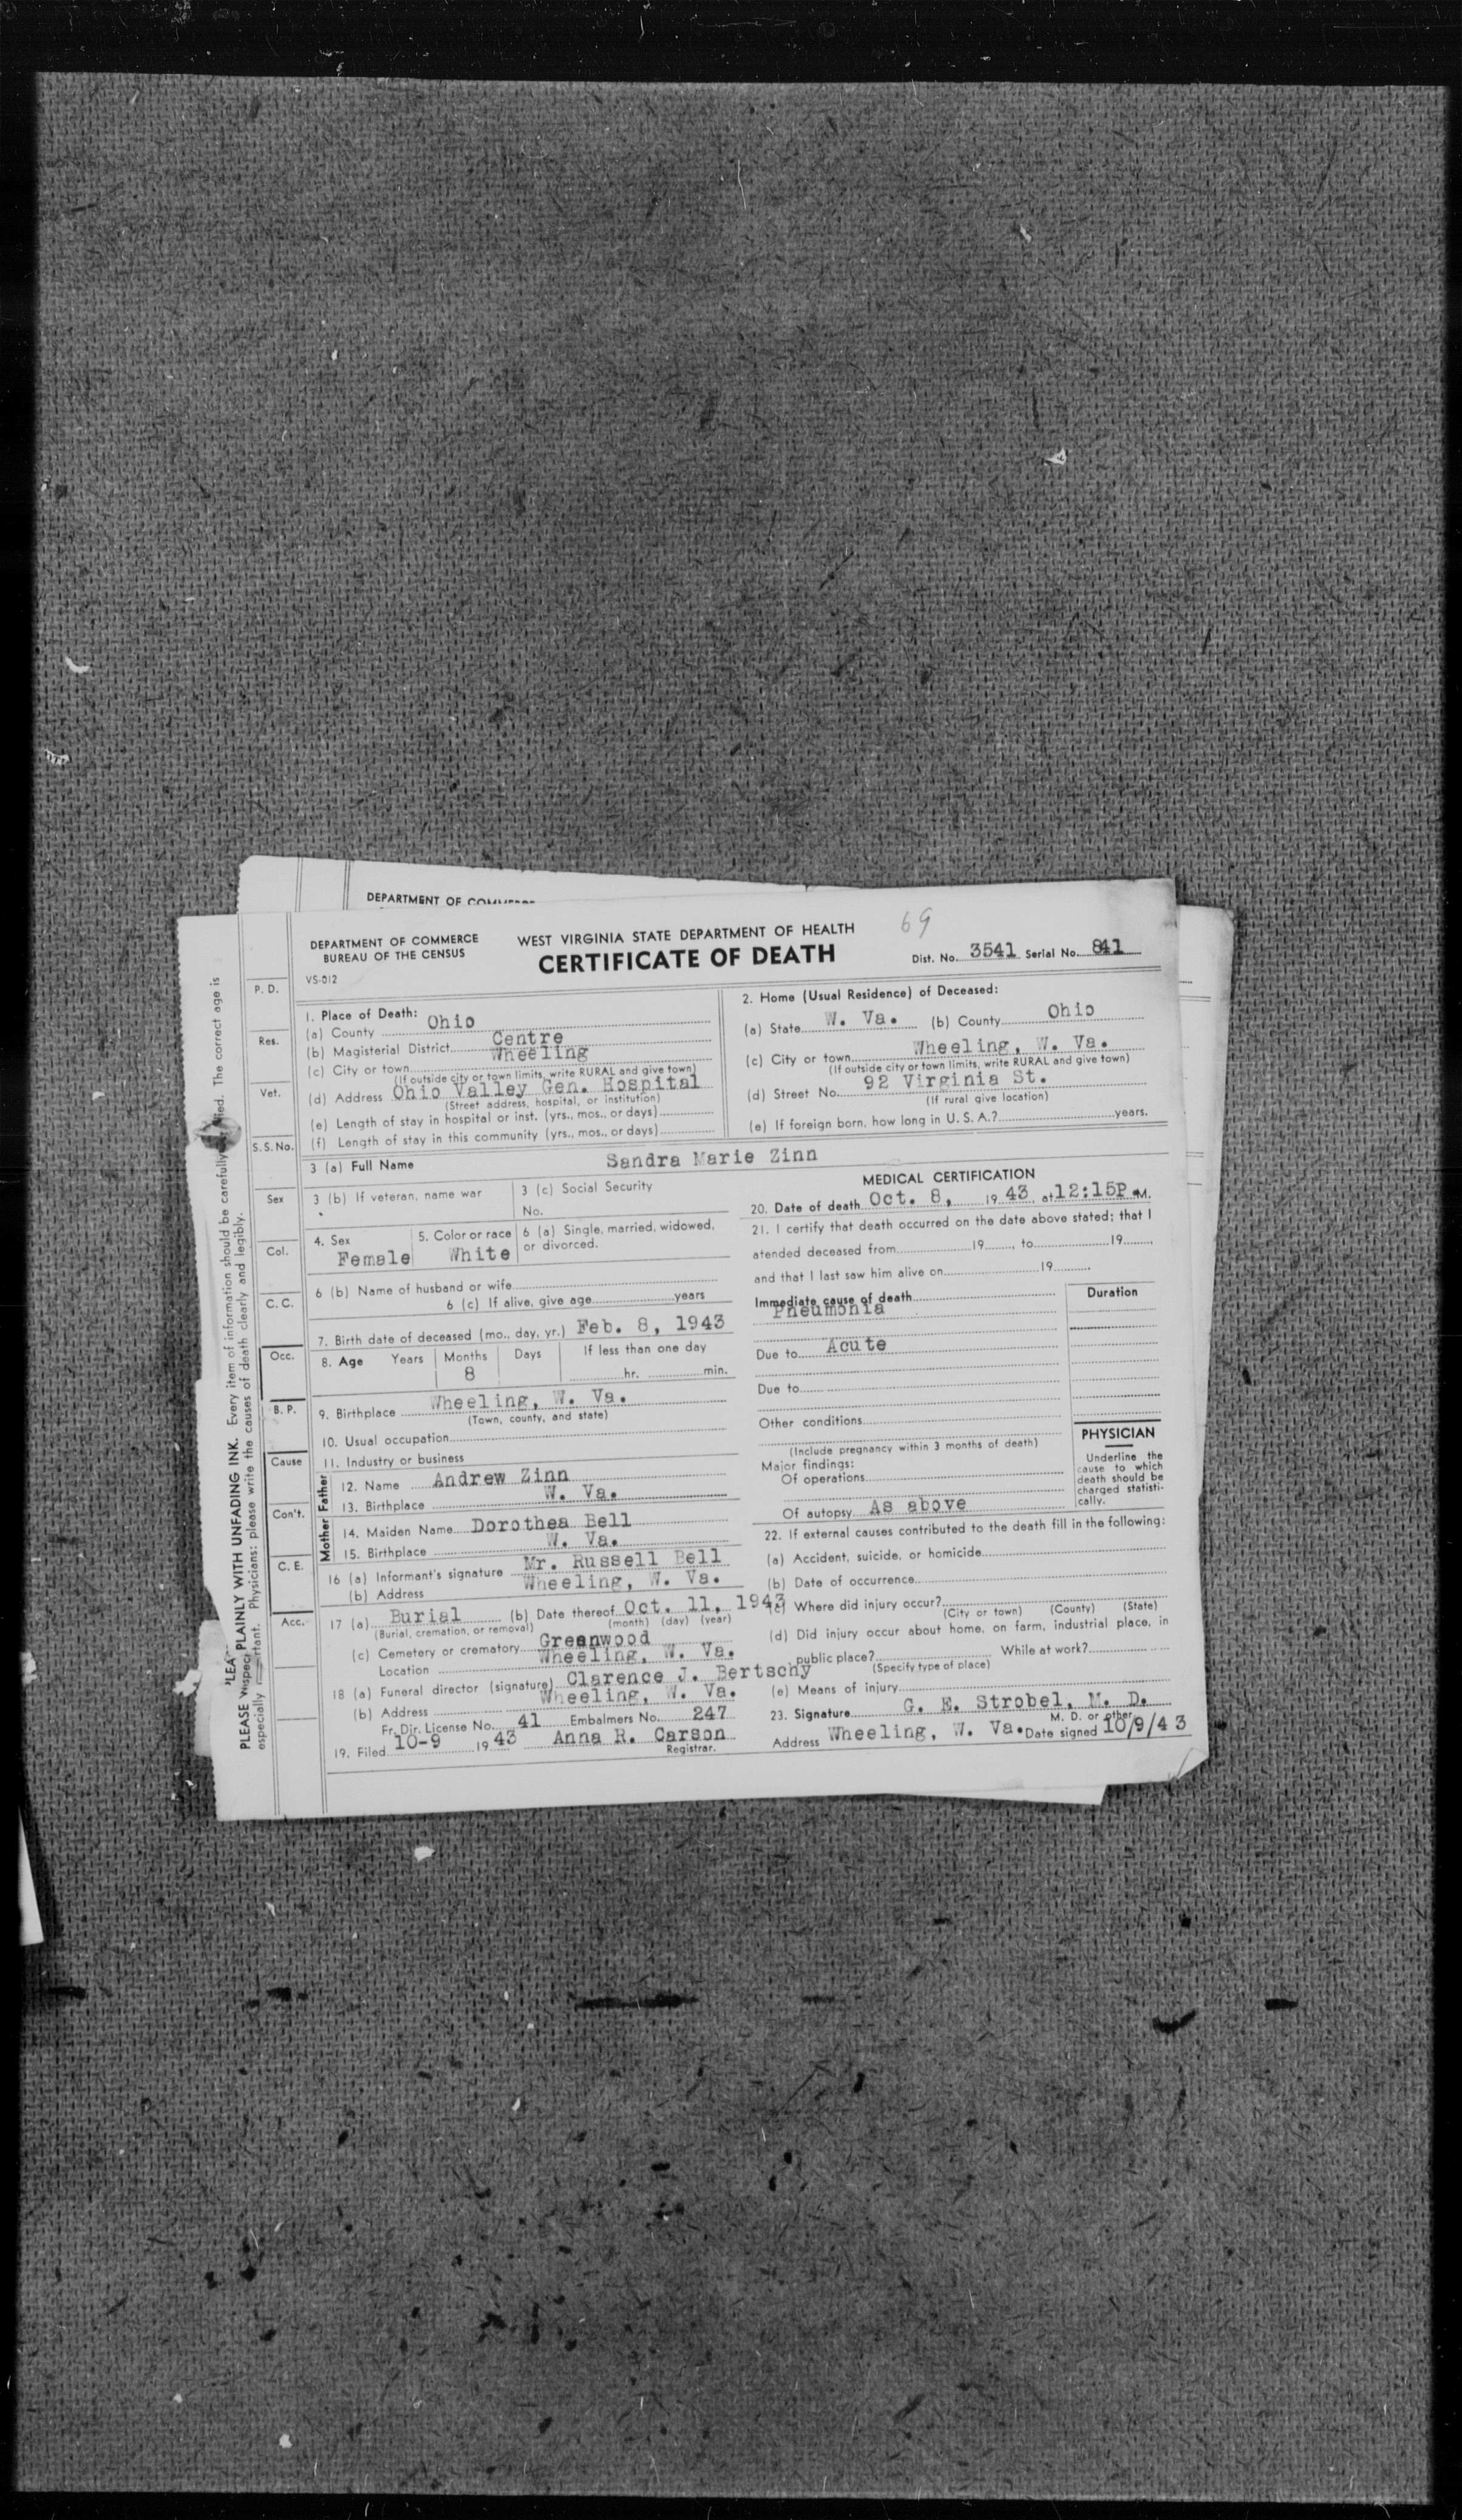 DEPARTMENT OF
DEPARTMENT OF COMMERCE
BUREAU OF THE CENSUS
VS-012
WEST VIRGINIA STATE DEPARTMENT OF HEALTH
CERTIFICATE OF DEATH
69
Dist. No. 3541 Serial No. 841
1. Place of Death:
(a) County Ohio
(b) Magisterial District Centre
(c) City or town Wheeling
(If outside city or town limits, write RURAL and give town)
(d) Address Ohio Valley Gen. Hospital
(Street address, hospital, or institution)
(e) Length of stay in hospital or inst. (yrs., mos., or days)
(f) Length of stay in this community (yrs., mos., or days)
2. Home (Usual Residence) of Deceased:
(a) State W. Va. (b) County Ohio
(c) City or town Wheeling, W. Va.
(If outside city or town limits, write RURAL and give town)
(d) Street No. 92 Virginia St.
(If rural give location)
(e) If foreign born, how long in U. S. A.? years.
3 (a) Full Name Sandra Marie Zinn
3 (b) If veteran, name war
3 (c) Social Security
No.
4. Sex Female
5. Color or race White
6 (a) Single, married, widowed,
or divorced.
6 (b) Name of husband or wife
6 (c) If alive, give age years
7. Birth date of deceased (mo., day, yr.) Feb. 8, 1943
8. Age Years Months Days If less than one day
8 hr. min.
9. Birthplace Wheeling, W. Va.
(Town, county, and state)
10. Usual occupation
11. Industry or business
Father
12. Name Andrew Zinn
13. Birthplace W. Va.
Mother
14. Maiden Name Dorothea Bell
15. Birthplace W. Va.
16 (a) Informant's signature Mr. Russell Bell
(b) Address Wheeling, W. Va.
17 (a) Burial (b) Date thereof Oct. 11, 1943
(Burial, cremation, or removal) (month) (day) (year)
(c) Cemetery or crematory Greenwood
Location Wheeling, W. Va.
18 (a) Funeral director (signature) Clarence J. Bertschy
(b) Address Wheeling, W. Va.
Fr. Dir. License No. 41 Embalmers No. 247
19. Filed 10-9 1943 Anna R. Carson
Registrar.
MEDICAL CERTIFICATION
20. Date of death Oct. 8, 1943 at 12:15P.M.
21. I certify that death occurred on the date above stated; that I
atended deceased from 19 , to 19 ,
and that I last saw him alive on 19
Immediate cause of death
Pneumonia
Duration
Due to Acute
Due to
Other conditions
(Include pregnancy within 3 months of death)
Major findings:
Of operations
Of autopsy As above
PHYSICIAN
Underline the
cause to which
death should be
charged statisti-
cally.
22. If external causes contributed to the death fill in the following:
(a) Accident, suicide, or homicide
(b) Date of occurrence
(c) Where did injury occur?
(City or town) (County) (State)
(d) Did injury occur about home, on farm, industrial place, in
public place? While at work?
(Specify type of place)
(e) Means of injury
23. Signature G. E. Strobel, M. D.
M. D. or other
Address Wheeling, W. Va. Date signed 10/9/43
P. D.
Res.
Vet.
S. S. No.
Sex
Col.
C. C.
Occ.
B. P.
Cause
Con't.
C. E.
Acc.
PLEASE PLAINLY WITH UNFADING INK. Every item of information should be carefully The correct age is
especially Physicians: please write the causes of death clearly and legibly.